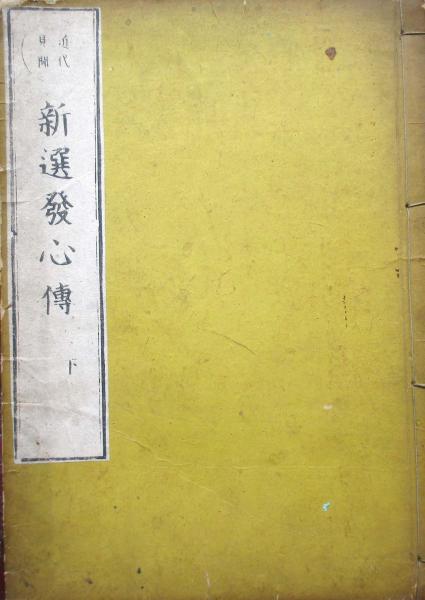 近代
見聞
新選發心傳
下